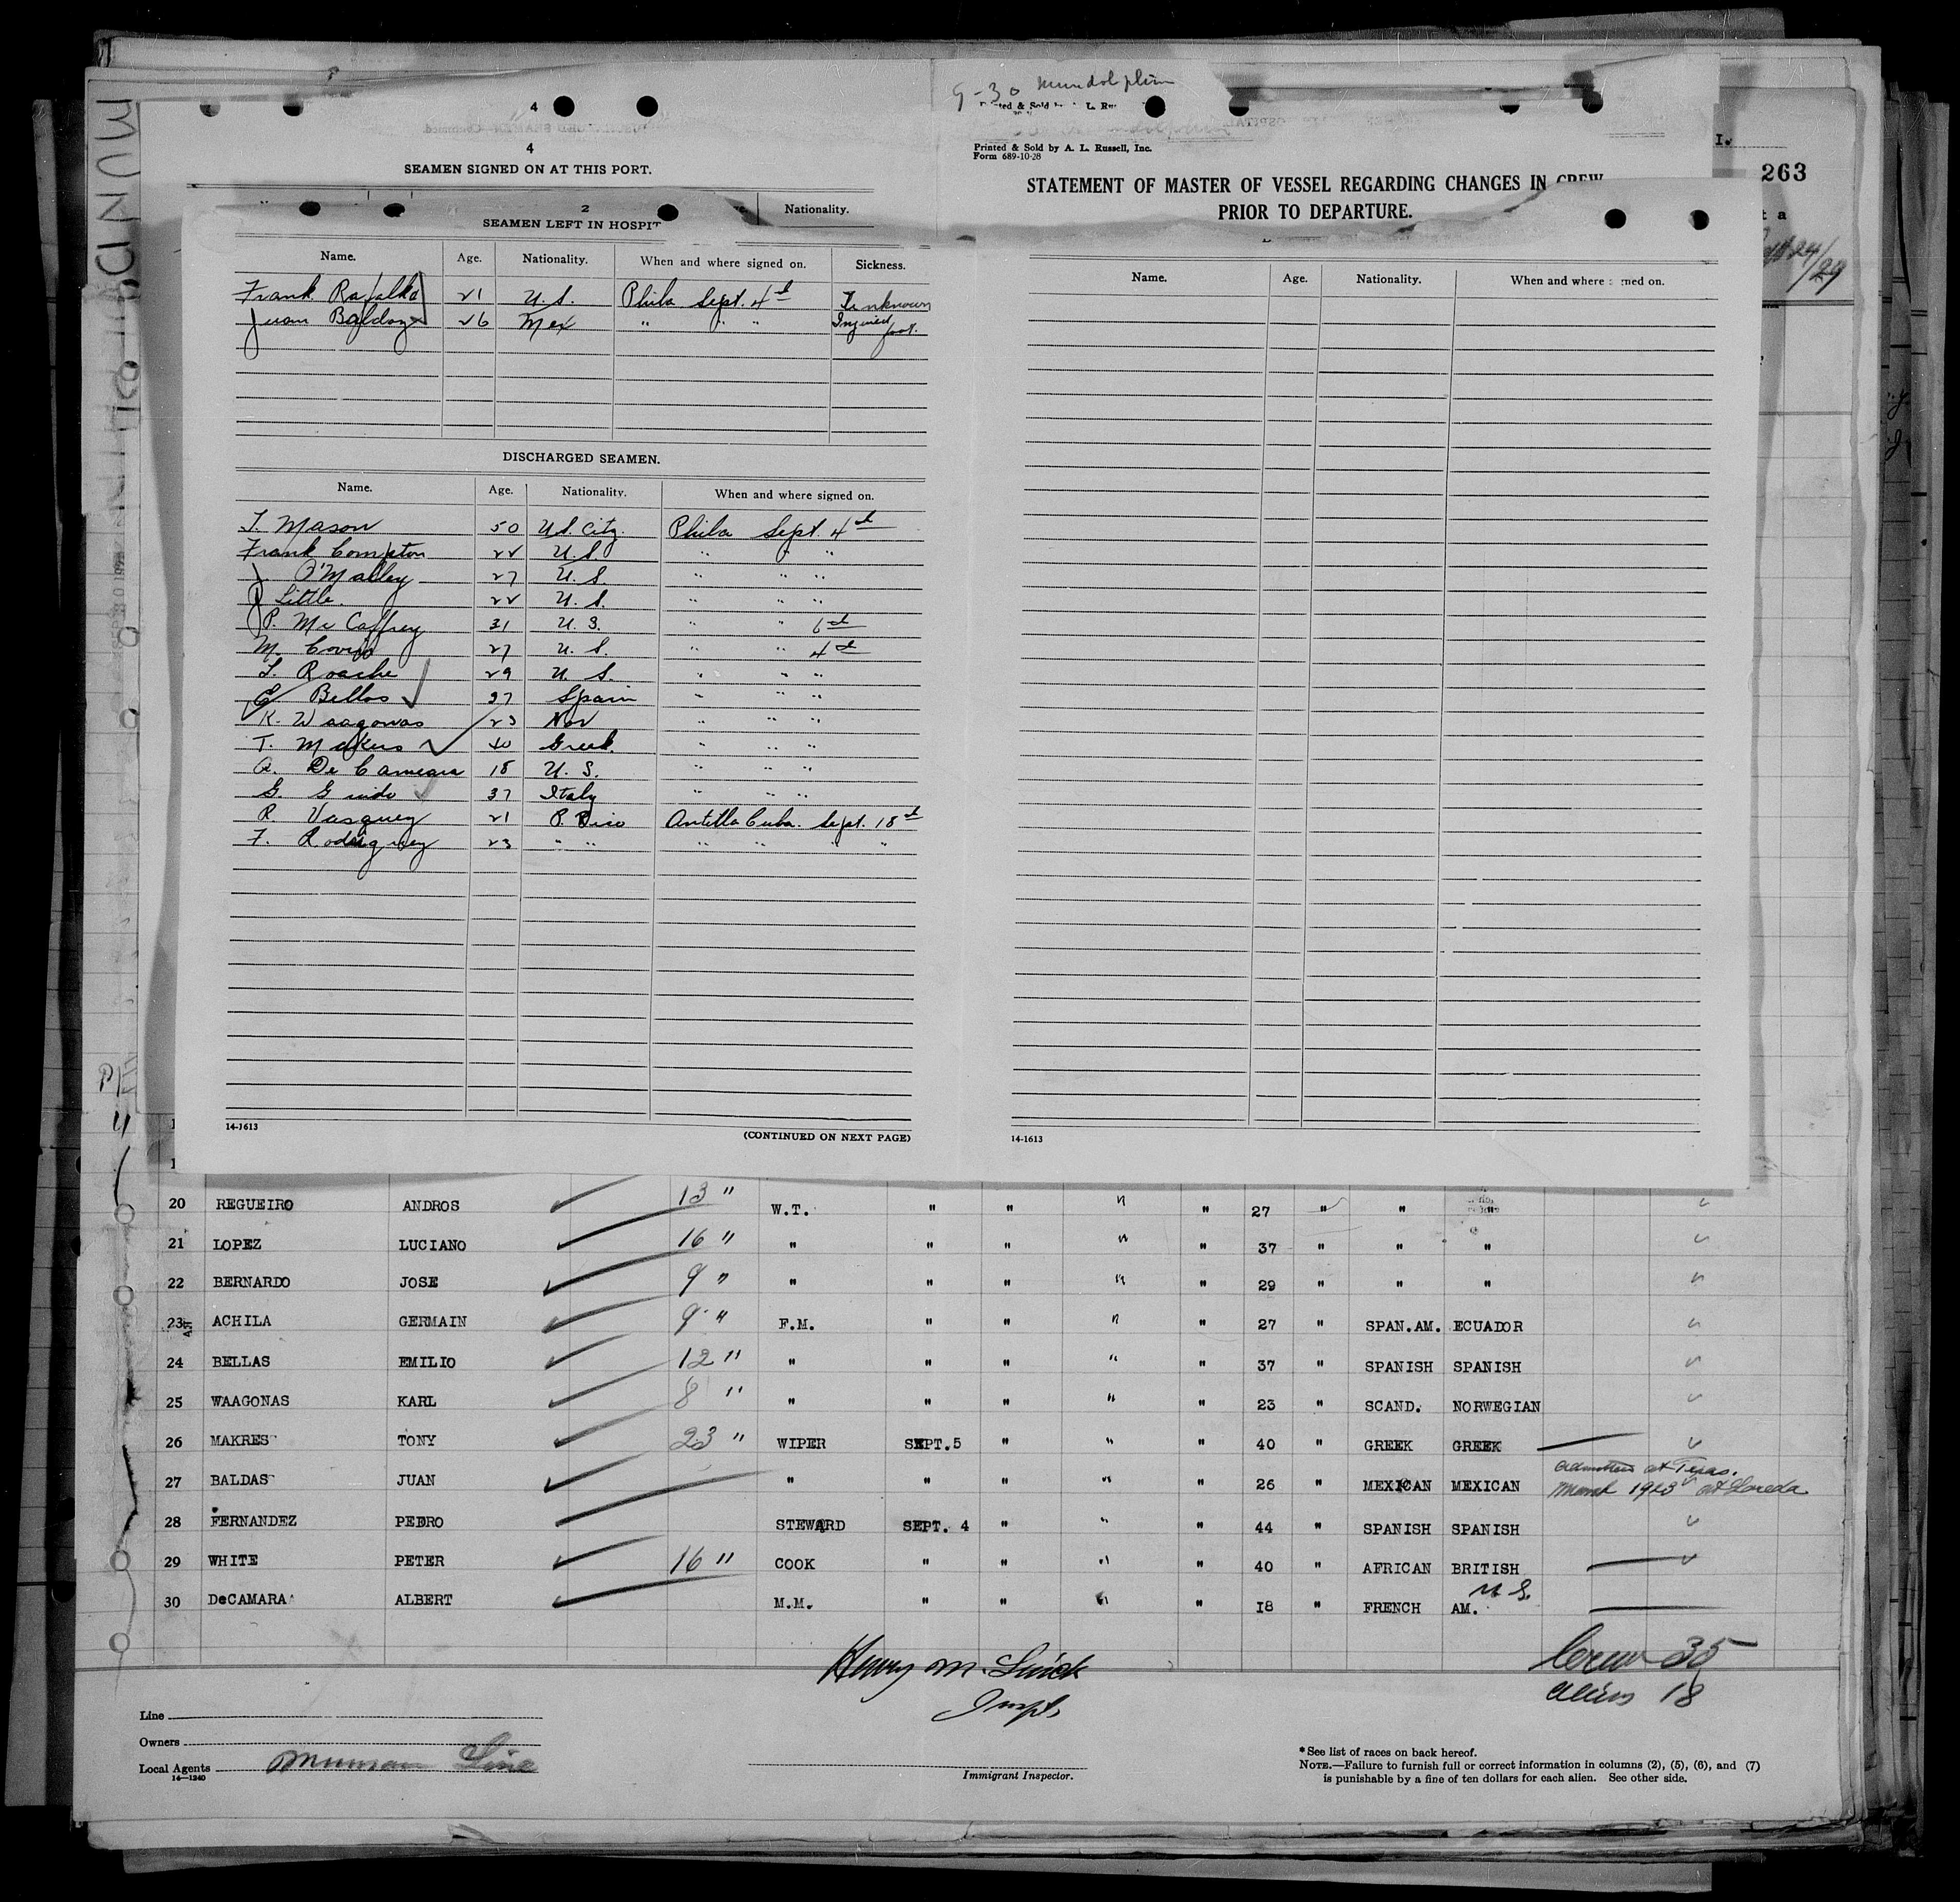 9-30 Mundolphin
4
4
SEAMEN SIGNED ON AT THIS PORT.
Nationality.
Printed & Sold by A. L. Russell, Inc.
Form 689-10-28
STATEMENT OF MASTER OF VESSEL REGARDING CHANGES IN CREW
PRIOR TO DEPARTURE.
263
2
SEAMEN LEFT IN HOSPIT
Name. Age. Nationality. When and where signed on. Sickness.
Frank Rafalko 21 U.S. Phila Sept. 4th Unknown
Juan Baldoz 26 Mex " " " Injured foot.
DISCHARGED SEAMEN.
Name. Age. Nationality. When and where signed on.
T. Mason 50 U.S. Citz Phila Sept. 4th
Frank Compton 22 U.S. " " "
J O'Malley 27 U.S. " " "
Little. 22 U.S. " " "
P. McCaffrey 31 U.S. " " 6th
M. 27 U.S. " " 4th
Roache 29 U.S. " " "
E Bellos 37 Spain " " "
K. Waagonas 23 Nor " " "
T. Makers 40 Greek " " "
A. De Camara 18 U.S. " " "
G. Guido 37 Italy " " "
R. Vasquez 21 P. Rico Antilla Cuba. Sept. 18th
F. Rodriguez 23 " " " " " "
14-1613
(CONTINUED ON NEXT PAGE)
Name. Age. Nationality. When and where signed on.
14-1613
20 REGUEIRO ANDROS 13 " W.T. " " " " 27 " " "
21 LOPEZ LUCIANO 16 " " " " " " 37 " " "
22 BERNARDO JOSE 9 " " " " " " 29 " " "
23 ACHILA GERMAIN 9 " F.M. " " " " 27 " SPAN.AM. ECUADOR
24 BELLAS EMILIO 12 " " " " " " 37 " SPANISH SPANISH
25 WAAGONAS KARL 8 " " " " " " 23 " SCAND. NORWEGIAN
26 MAKRES TONY 23 " WIPER SEPT.5 " " " 40 " GREEK GREEK
27 BALDAS JUAN " " " " " 26 " MEXICAN MEXICAN at Texas. March 1923 at Laredo
28 FERNANDEZ PEDRO STEWARD SEPT. 4 " " " 44 " SPANISH SPANISH
29 WHITE PETER 16 " COOK " " " " 40 " AFRICAN BRITISH
30 DeCAMARA ALBERT M.M. " " " " 18 " FRENCH AM. U.S.
Henry M.
Inspt.
Crew 35
Aliens 18
Line
Owners
Local Agents Munson Line
14-1240
Immigrant Inspector.
*See list of races on back hereof.
NOTE.—Failure to furnish full or correct information in columns (2), (5), (6), and (7)
is punishable by a fine of ten dollars for each alien. See other side.